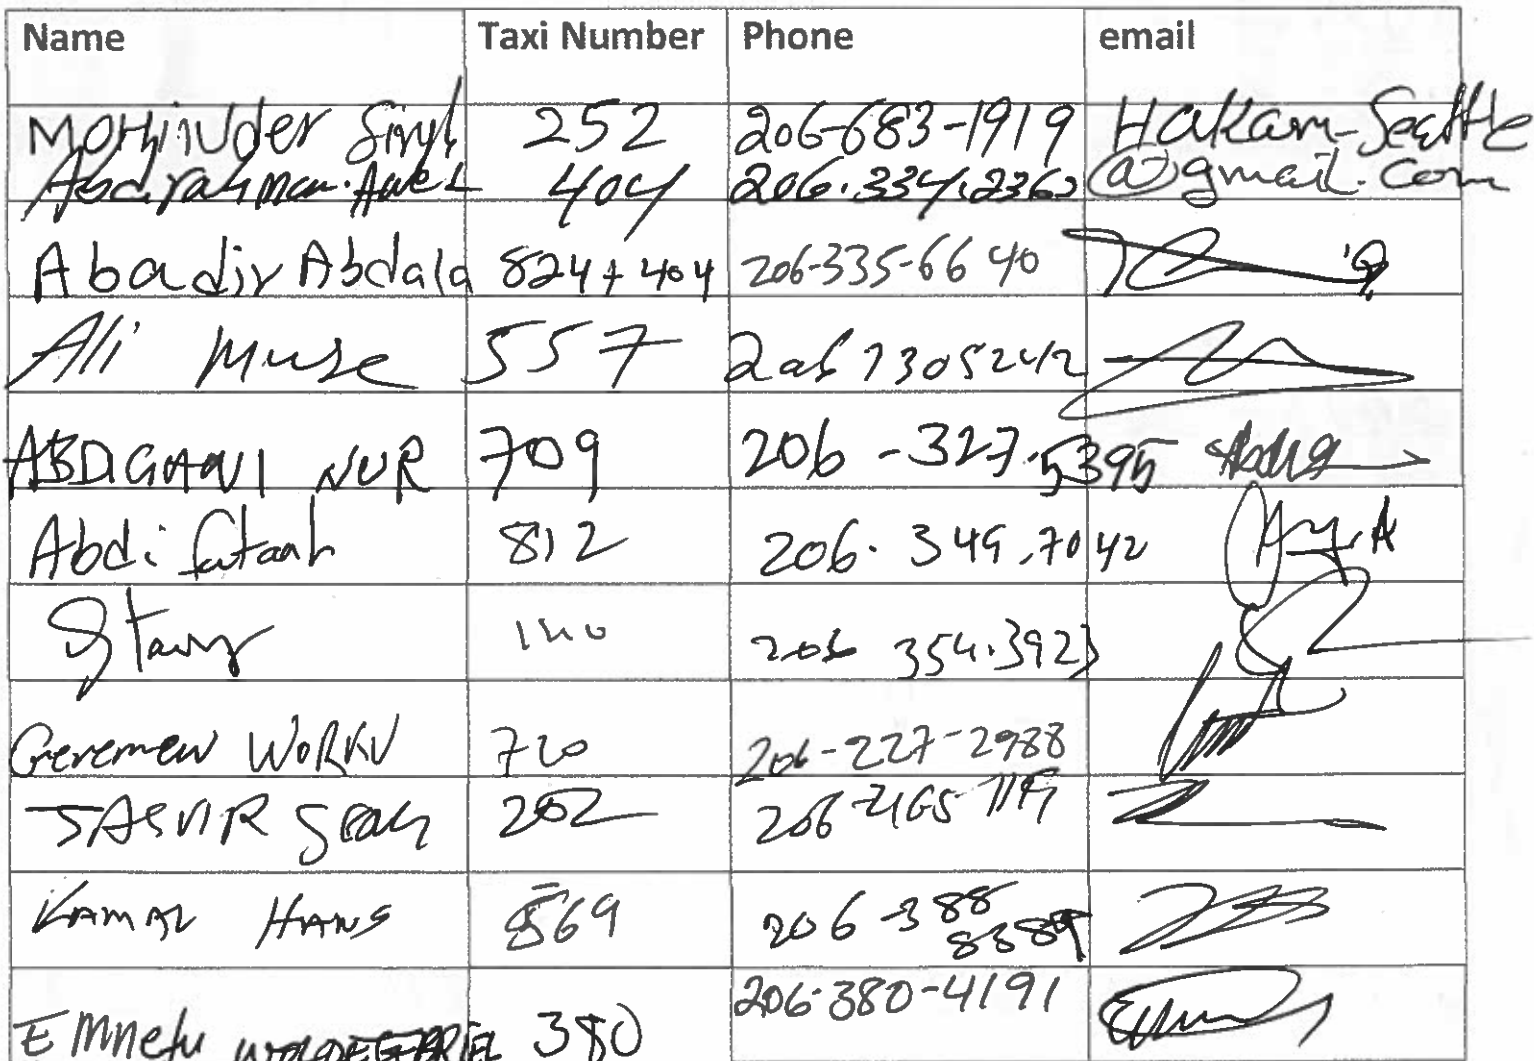 Name Taxi Number Phone email
Mohinuder Singh 252 206-683-1919 Hakam-Seattle
Abdirahman. 404 206.334.2362 @gmail.com
Abadir Abdala 824 + 404 206-335-6640
Ali Muse 557 206 7305242
ABDIGANI NUR 709 206-327.5395
Abdi fataah 812 206. 349.7042
140 206 354.3923
Geremew WORKU 720 206-227-2988
JASVIR 202 206
KAMAL HANS 869 206-388 8389
Emnetu WOLDEGEBRIEL 380 206-380-4191